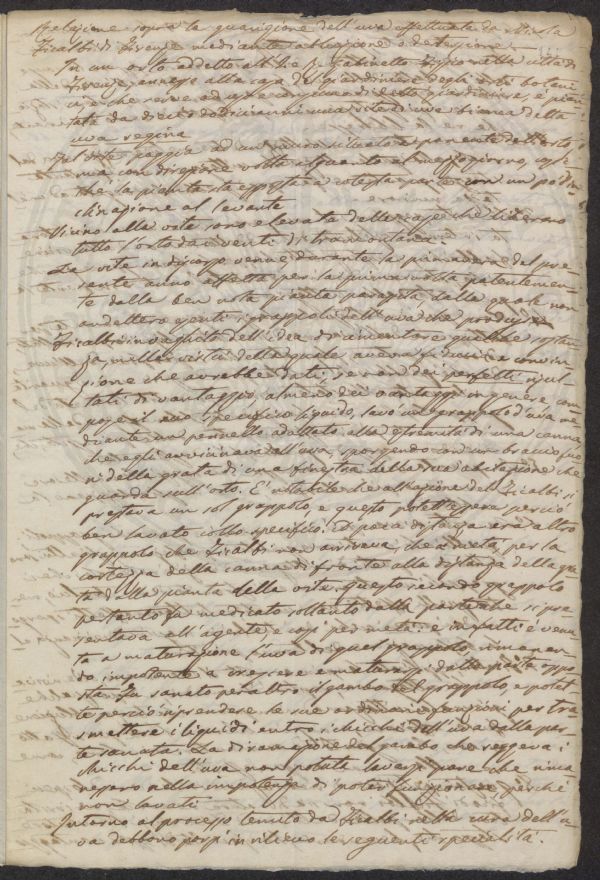 Relazione sopra la guarigione dell'uva effettuata da Nicola
Ficalbi di Firenze mediante abluzione o detersione.
In un orto addetto all'I. e R. Gabinetto Fisico nella città di
Firenze, annesso alla casa del giardiniere degli orti botani-
ci, e che serve ad uso comune di detto giardiniere, è pian-
tata da dieci o dodici anni una vite di uva bianca detta
uva regina
Tal vite poggia ad un muro situato a ponente dell'orto
ma con direzione volta alquanto al mezzogiorno, cosic-
che la pianta sta esposta a cotesta parte con un po' d'in-
clinazione al levante
Vicino alla vite sono elevate delle case che liberano
tutto l'orto dai venti di tramontana.
La vite in discorso venne durante la primavera del pre-
sente anno affetta per la prima volta patentemen-
te dalla ben nota pianta parasita dalla quale non
andettero esenti i grappoli dell'uva che produsse
Ficalbi invaghito dell'idea di cimentare qualche sostan-
za, nella virtù della quale aveva fiducia e convin-
zione che avrebbe dati, se non dei perfetti risul-
tati di vantaggio, almeno dei vantaggi in genere com-
pose il suo specifico liquido, lavò un grappolo d'uva me-
diante un pennello adattato alla estremità di una canna
che egli avvicinava all'uva, sporgendo con un braccio fuo-
ri della grata di una finestra della sua abitazione che
guarda sull'orto. E' notabile che all'azione del Ficalbi si
prestava un sol grappolo, e questo potette essere perciò
ben lavato collo specifico. A poca distanza era altro
grappolo che Ficalbi non arrivava, che a metà, per la
cortezza della canna di fronte alla distanza della gra-
ta dalla pianta della vite, questo secondo grappolo
pertanto fu medicato soltanto dalla parte che si pre-
sentava all'agente e così per metà: e infatti è venu-
ta a maturazione l'uva di quel grappolo, rimanen-
do impotente a crescere e maturarsi dalla parte oppo-
sta. Fu sanato peraltro il gambo del grappolo, e potet-
te perciò riprendere le sue ordinarie funzioni per tra-
smettere i liquidi entro i chicchi dell'uva dalla par-
te sanata. La diramazione del gambo che reggeva i
chicchi dell'uva non potuta lavarsi pare che rima-
nessero nella impotenza di poter funzionare perché
non lavati.
Intorno al processo tenuto da Ficalbi nella cura dell'u-
va debbono porsi in rilievo le seguenti specialità.